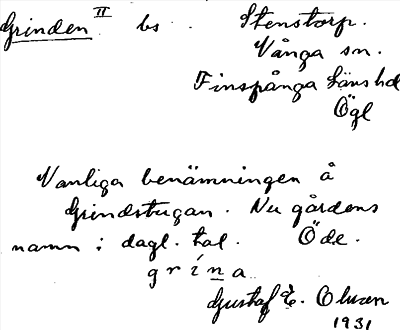 Grinden II bs. Stenstorp.
Vånga sn.
Finspånga läns hd
Ögl
Vanliga benämningen å
Grindstugan. Nu gårdens
namn i dagl. tal. Öde.
grína
Gustaf E. Olsson
1931